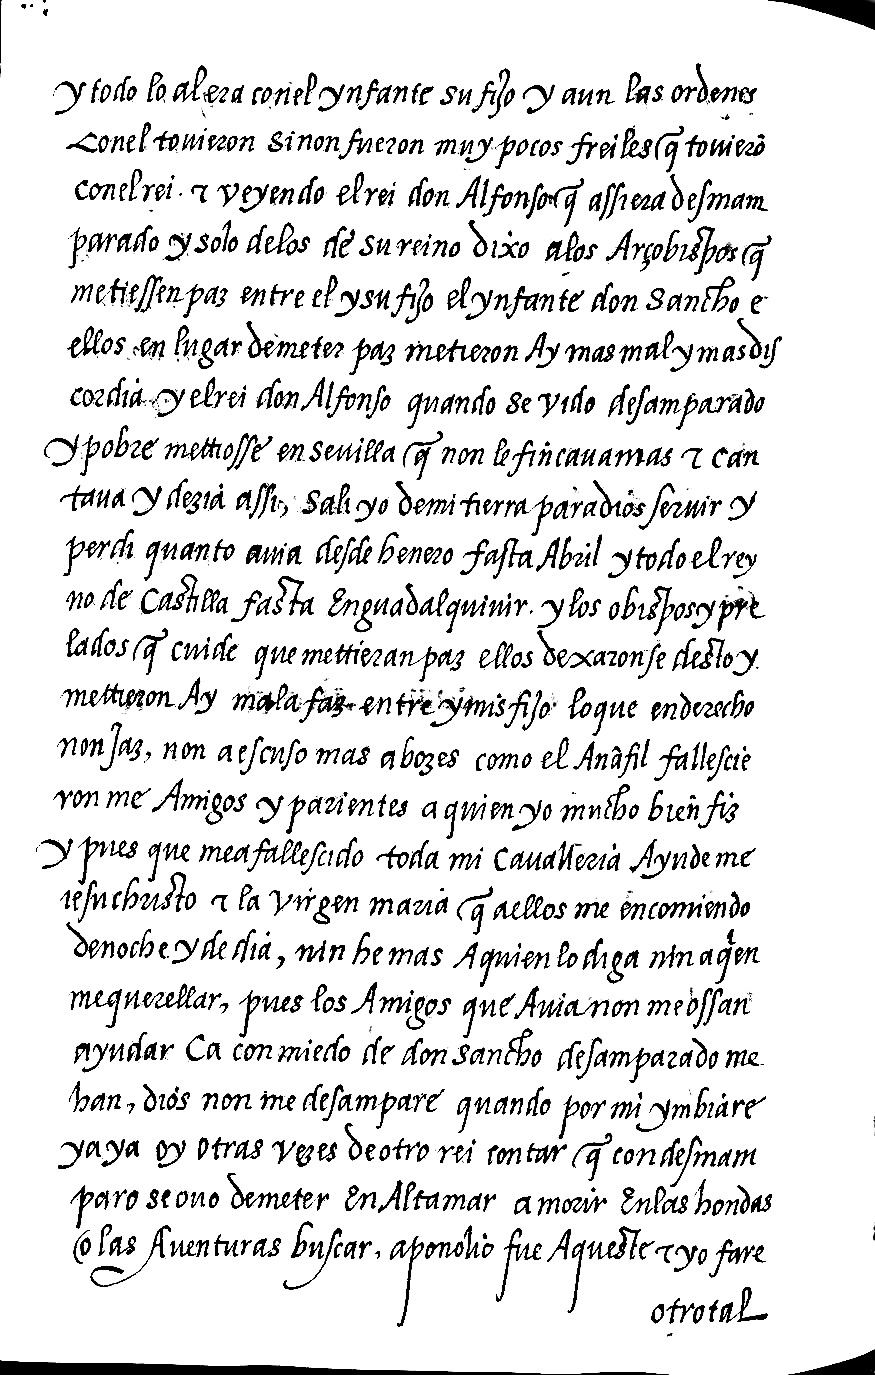 y todo lo al era con el ynfante su fijo y aun las ordenes
con el touieron sinon fueron muy pocos freiles q̃ touierõ
con el rei. ⁊ veyendo el rei don Alfonso q̃ assi era desmam
parado y solo de los de su reino dixo a los Arçobispos q̃
metiessen paz entre el y su fijo el ynfante don Sancho e
ellos en lugar de meter paz metieron Ay mas mal y mas dis
cordia y el rei don Alfonso quando se vido desamparado
y pobre mettiosse en seuilla q̃ non le fincaua mas ⁊ can
taua y dezia assi, Sali yo de mi tierra para dios seruir y
perdi quanto auia desde henero fasta Abril y todo el rey
no de Castilla fasta En guadalquiuir. y los obispos y pre
lados q̃ cuide que mettieran paz ellos dexaronse desto y
mettieron Ay mala faz entre y mis fijo lo que en derecho
non jaz, non a escuso mas a bozes como el Anãfil fallescie
ron me Amigos y parientes a quien yo mucho bien fiz
y pues que me a fallescido toda mi Cauallería Ayude me
iesuchristo ⁊ la Virgen maria q̃ a ellos me encomiendo
de noche y de dia, nin he mas A quien lo diga nin a qen
me querellar, pues los Amigos que Auia non me ossan
ayudar Ca con miedo de don Sancho desamparado me
han, dios non me desampare quando por mi ymbiare
ya ya oy otras vezes de otro rei contar q̃ con desmam
paro se ouo de meter En Alta mar a morir En las hondas
o las Auenturas buscar, aponolio fue Aqueste ⁊ yo fare
otro tal